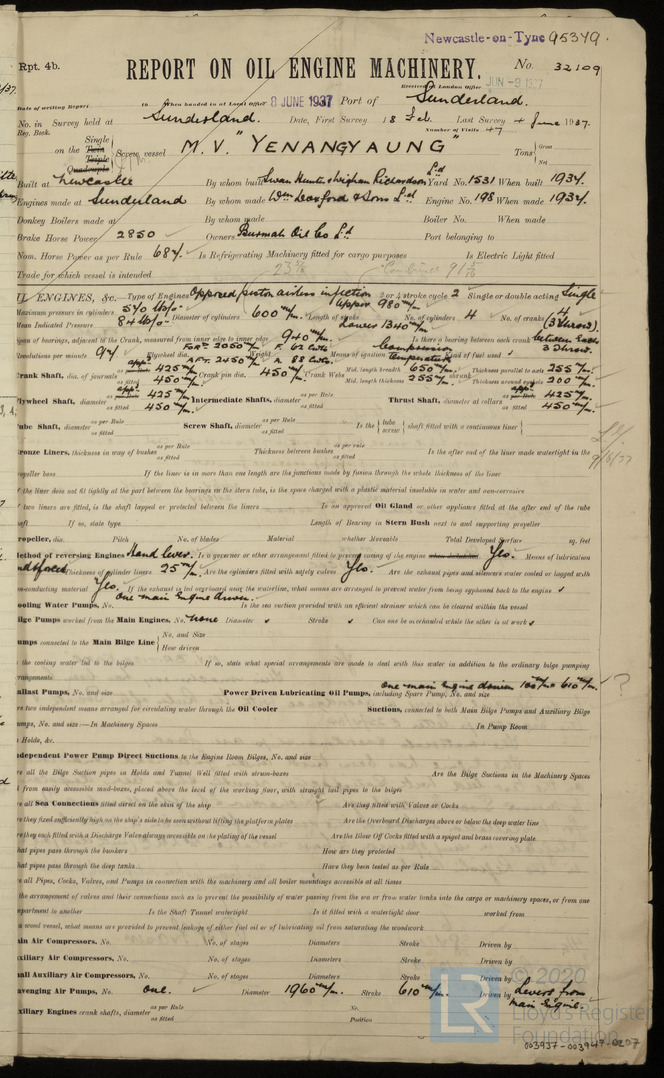 Newcastle-on-Tyne 95379.
Rpt. 4b.
REPORT ON OIL ENGINE MACHINERY.
No. 32109
Received at London Office JUN -9 1937
Date of writing Report to When handed in at Local Office 8 JUNE 1937 Port of Sunderland.
No. in Survey held at Sunderland. Date, First Survey 18 Feb. Last Survey 4 June 1937.
Reg. Book. Number of Visits 47
on the Single Twin Triple Quadruple Screw vessel M.V. "YENANGYAUNG" Tons Gross Net
Built at Newcastle By whom built Swan Hunter & Wigham Richardson Ld Yard No. 1531 When built 1937.
Engines made at Sunderland By whom made Wm Doxford & Sons Ld Engine No. 198 When made 1937.
Donkey Boilers made at By whom made Boiler No. When made
Brake Horse Power 2850 Owners Burmah Oil Co Ld Port belonging to
Nom. Horse Power as per Rule 687. Is Refrigerating Machinery fitted for cargo purposes Is Electric Light fitted
Trade for which vessel is intended
IL ENGINES, &c. Type of Engines Opposed piston airless injection 2 or 4 stroke cycle 2 Single or double acting Single
Maximum pressure in cylinders 570 lbs/□" Diameter of cylinders 600 m/m. Length of stroke Upper 980 m/m. Lower 1340 m/m. No. of cylinders 4 No. of cranks 4 (3 throw).
Mean Indicated Pressure 84 lbs/□"
Span of bearings, adjacent to the Crank, measured from inner edge to inner edge 940 m/m. Is there a bearing between each crank between each 3 throw.
Revolutions per minute 97 Flywheel dia. For. 2050 m/m. Aft. 2450 m/m. Weight F. 62 cwts. A 88 cwts. Means of ignition Compression temperature Kind of fuel used
Crank Shaft, dia. of journals as per Rule app. 425 m/m as fitted 450 m/m. Crank pin dia. 450 m/m. Crank Webs Mid. length breadth 650 m/m. Mid. length thickness 255 m/m. shrunk Thickness parallel to axis 255 m/m. Thickness around eyehole 200 m/m.
Flywheel Shaft, diameter as per Rule app. 425 m/m as fitted 450 m/m. Intermediate Shafts, diameter as per Rule as fitted Thrust Shaft, diameter at collars as per Rule app. 425 m/m. as fitted 450 m/m.
Tube Shaft, diameter as per Rule as fitted Screw Shaft, diameter as per Rule as fitted Is the tube screw shaft fitted with a continuous liner
Bronze Liners, thickness in way of bushes as per Rule as fitted Thickness between bushes as per rule as fitted Is the after end of the liner made watertight in the
propeller boss If the liner is in more than one length are the junctions made by fusion through the whole thickness of the liner
If the liner does not fit tightly at the part between the bearings in the stern tube, is the space charged with a plastic material insoluble in water and non-corrosive
If two liners are fitted, is the shaft lapped or protected between the liners Is an approved Oil Gland or other appliance fitted at the after end of the tube
shaft If so, state type Length of Bearing in Stern Bush next to and supporting propeller
Propeller, dia. Pitch No. of blades Material whether Moveable Total Developed Surface sq. feet
Method of reversing Engines Hand lever. Is a governor or other arrangement fitted to prevent racing of the engine when declutched Yes. Means of lubrication
forced Thickness of cylinder liners 25 m/m. Are the cylinders fitted with safety valves Yes. Are the exhaust pipes and silencers water cooled or lagged with
non-conducting material Yes. If the exhaust is led overboard near the waterline, what means are arranged to prevent water from being syphoned back to the engine
Cooling Water Pumps, No. One main Engine driven. Is the sea suction provided with an efficient strainer which can be cleared within the vessel
Bilge Pumps worked from the Main Engines, No. None Diameter Stroke Can one be overhauled while the other is at work
Pumps connected to the Main Bilge Line No. and Size How driven
Is the cooling water led to the bilges If so, state what special arrangements are made to deal with this water in addition to the ordinary bilge pumping
arrangements
Ballast Pumps, No. and size Power Driven Lubricating Oil Pumps, including Spare Pump, No. and size One main engine driven 610 m/m. ?
Are two independent means arranged for circulating water through the Oil Cooler Suctions, connected to both Main Bilge Pumps and Auxiliary Bilge
Pumps, No. and size:—In Machinery Spaces In Pump Room
In Holds, &c.
Independent Power Pump Direct Suctions to the Engine Room Bilges, No. and size
Are all the Bilge Suction pipes in Holds and Tunnel Well fitted with strum-boxes Are the Bilge Suctions in the Machinery Spaces
led from easily accessible mud-boxes, placed above the level of the working floor, with straight tail pipes to the bilges
Are all Sea Connections fitted direct on the skin of the ship Are they fitted with Valves or Cocks
Are they fixed sufficiently high on the ship's side to be seen without lifting the platform plates Are the Overboard Discharges above or below the deep water line
Are they each fitted with a Discharge Valve always accessible on the plating of the vessel Are the Blow Off Cocks fitted with a spigot and brass covering plate
What pipes pass through the bunkers How are they protected
What pipes pass through the deep tanks Have they been tested as per Rule
Are all Pipes, Cocks, Valves, and Pumps in connection with the machinery and all boiler mountings accessible at all times
Is the arrangement of valves and their connections such as to prevent the possibility of water passing from the sea or from water tanks into the cargo or machinery spaces, or from one
compartment to another Is the Shaft Tunnel watertight Is it fitted with a watertight door worked from
If a wood vessel, what means are provided to prevent leakage of either fuel oil or of lubricating oil from saturating the woodwork
Main Air Compressors, No. No. of stages Diameters Stroke Driven by
Auxiliary Air Compressors, No. No. of stages Diameters Stroke Driven by
Small Auxiliary Air Compressors, No. No. of stages Diameters Stroke Driven by
Scavenging Air Pumps, No. One. Diameter 1960 m/m. Stroke 610 m/m. Driven by Levers from main Engine.
Auxiliary Engines crank shafts, diameter as per Rule as fitted No. Position
© 2020
LR Lloyd's Register Foundation
003937-003947-0207